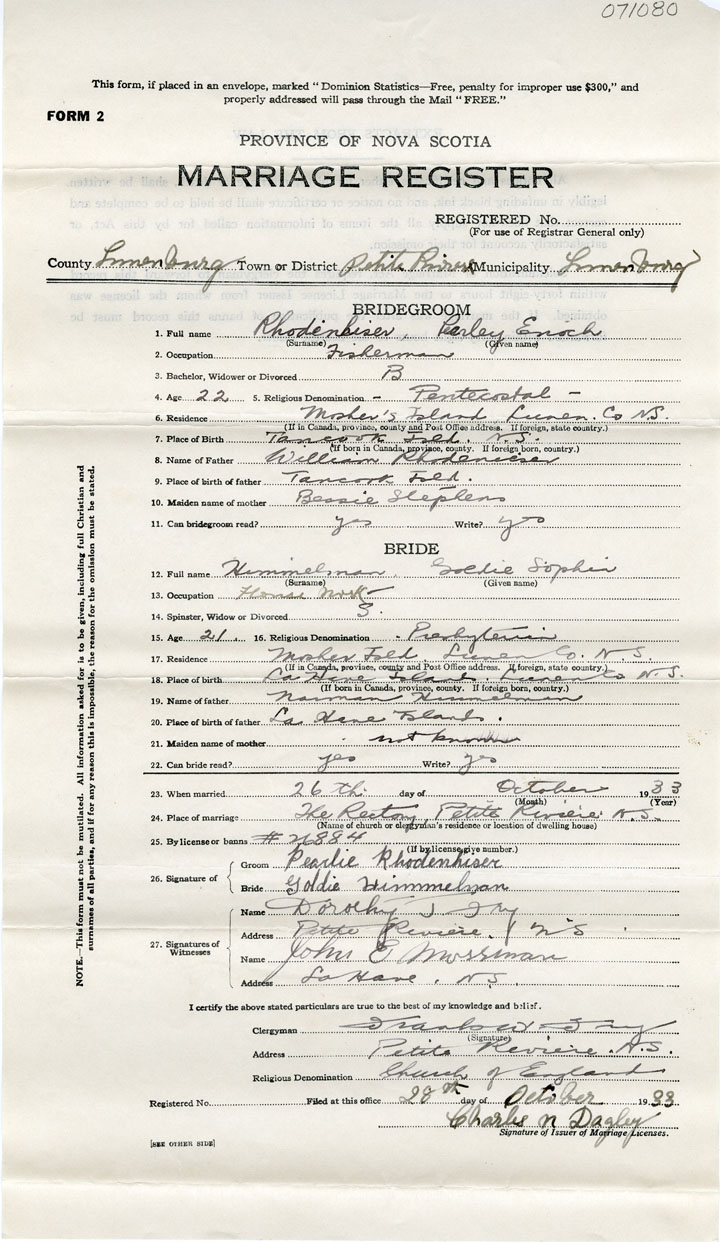 071080
This form, if placed in an envelope, marked "Dominion Statistics—Free, penalty for improper use $300," and
properly addressed will pass through the Mail "FREE."
FORM 2
PROVINCE OF NOVA SCOTIA
MARRIAGE REGISTER
REGISTERED No.
(For use of Registrar General only)
County Lunenburg Town or District Petite Riviere Municipality Lunenburg
BRIDEGROOM
1. Full name Rhodenhiser, Parley Enoch
(Surname) (Given name)
2. Occupation Fisherman
3. Bachelor, Widower or Divorced B
4. Age 22 5. Religious Denomination - Pentecostal -
6. Residence Mosher's Island Lunen. Co N.S.
(If in Canada, province, county and Post Office address. If foreign, state country.)
7. Place of Birth Tancook Isld. N.S.
(If born in Canada, province, county. If foreign born, country.)
8. Name of Father William Rhodenhiser
9. Place of birth of father Tancook Isld.
10. Maiden name of mother Bessie Stephens
11. Can bridegroom read? yes Write? yes
BRIDE
12. Full name Himmelman, Goldie Sophia
(Surname) (Given name)
13. Occupation House Work
14. Spinster, Widow or Divorced S.
15. Age 21. 16. Religious Denomination - Presbyterian
17. Residence Mosher Isld. Lunen Co. N.S.
(If in Canada, province, county and Post Office address. If foreign, state country.)
18. Place of birth La Have Islands. Lunen Co N.S.
(If born in Canada, province, county. If foreign born, country.)
19. Name of father Norman Himmelman
20. Place of birth of father La Have Islands.
21. Maiden name of mother not known
22. Can bride read? yes Write? yes
23. When married 26 th. day of October 1933
(Month) (Year)
24. Place of marriage The Rectory, Petite Riviere. N.S.
(Name of church or clergyman's residence or location of dwelling house)
25. By license or banns #
(If by license give number.)
26. Signature of Groom Pearlie Rhodenhiser
Bride Goldie Himmelman
27. Signatures of Witnesses Name Dorothy J. Fry
Address Petite Riviere, N S
Name John E Mossman
Address La Have. N.S.
I certify the above stated particulars are true to the best of my knowledge and belief.
Clergyman
(Signature)
Address Petite Reviere. N.S.
Religious Denomination Church of England
Registered No. Filed at this office 28th day of October 1933
Charles N Dagley
Signature of Issuer of Marriage Licenses.
[SEE OTHER SIDE]
NOTE.—This form must not be mutilated. All information asked for is to be given, including full Christian and
surnames of all parties, and if for any reason this is impossible, the reason for the omission must be stated.